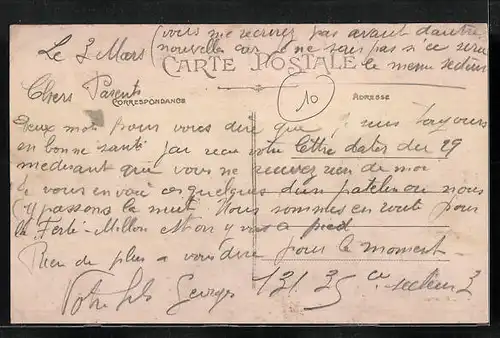 Le 3 Mars (vous me recrirez pas avant dautre
nouvelles car je ne sais pas si ce sera
le meme secteur
CARTE POSTALE
10
Chers Parents
CORRESPONDANCE
ADRESSE
Deux mots pour vous dire que je suis toujours
en bonne santé jai recu votre lettre dater du 29
me disant que vous ne recevez rien de moi
je vous envoie ces quelques dun patelin ou nous
y passons la nuit. Nous sommes en route pour
la Ferté-Millon et on y va a pied
Rien de plus a vous dire pour le moment
Votre fils Georges 131 35 Cie secteur 3